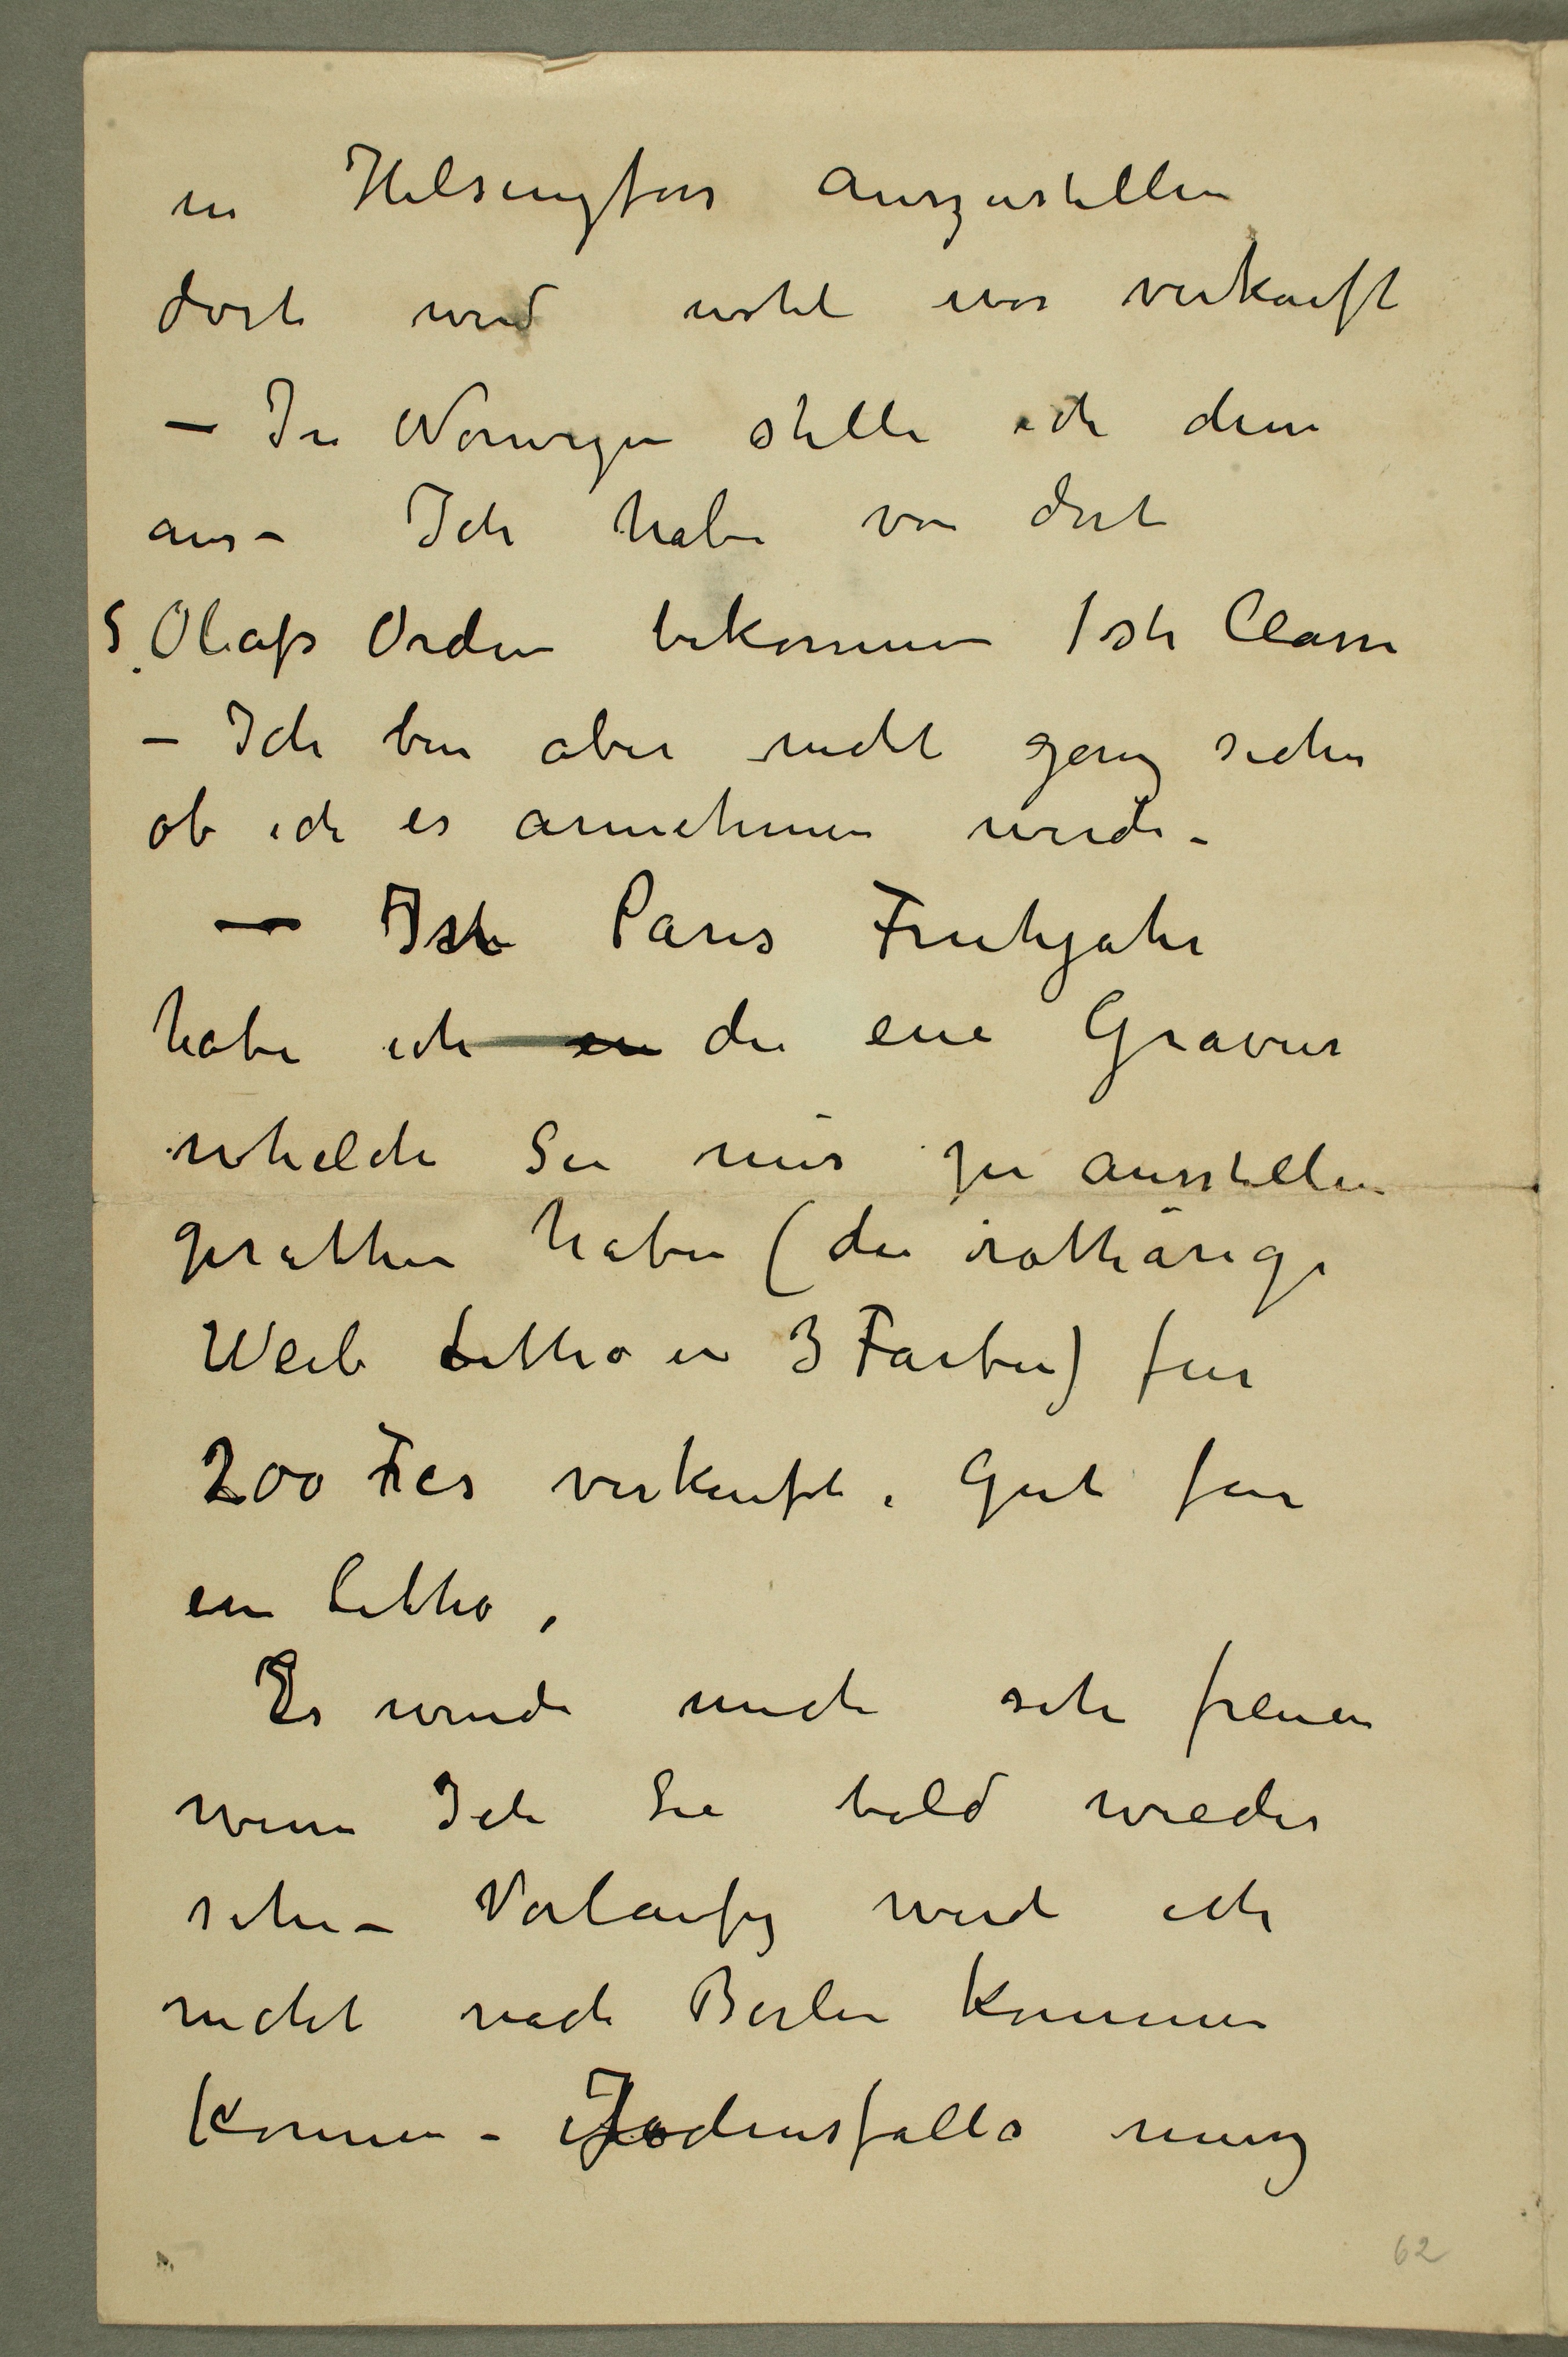 in Helsingfors auszustellen
dort wird wohl was verkauft
— In Norwegen stelle ich denn
aus – Ich habe von dort
S. Olafs Orden bekommen 1ste Classe
– Ich bin aber nicht ganz sicher
ob ich es annehmen werde –
— Paris Fruhjahr
habe ich die eine Gravur
whelche Sie mir zu ausstellen
gerathen haben (die rothärige
Weib Litho in 3 Farben) fur
200 Fcs verkauft. Gut fur
ein Litho,
Es wurde mich sehr freuen
wenn Ich Sie bald wieder
sehe – Vorlaufig werde ich
nicht nach Berlin kommen
konnen – Jedensfalls muss
62